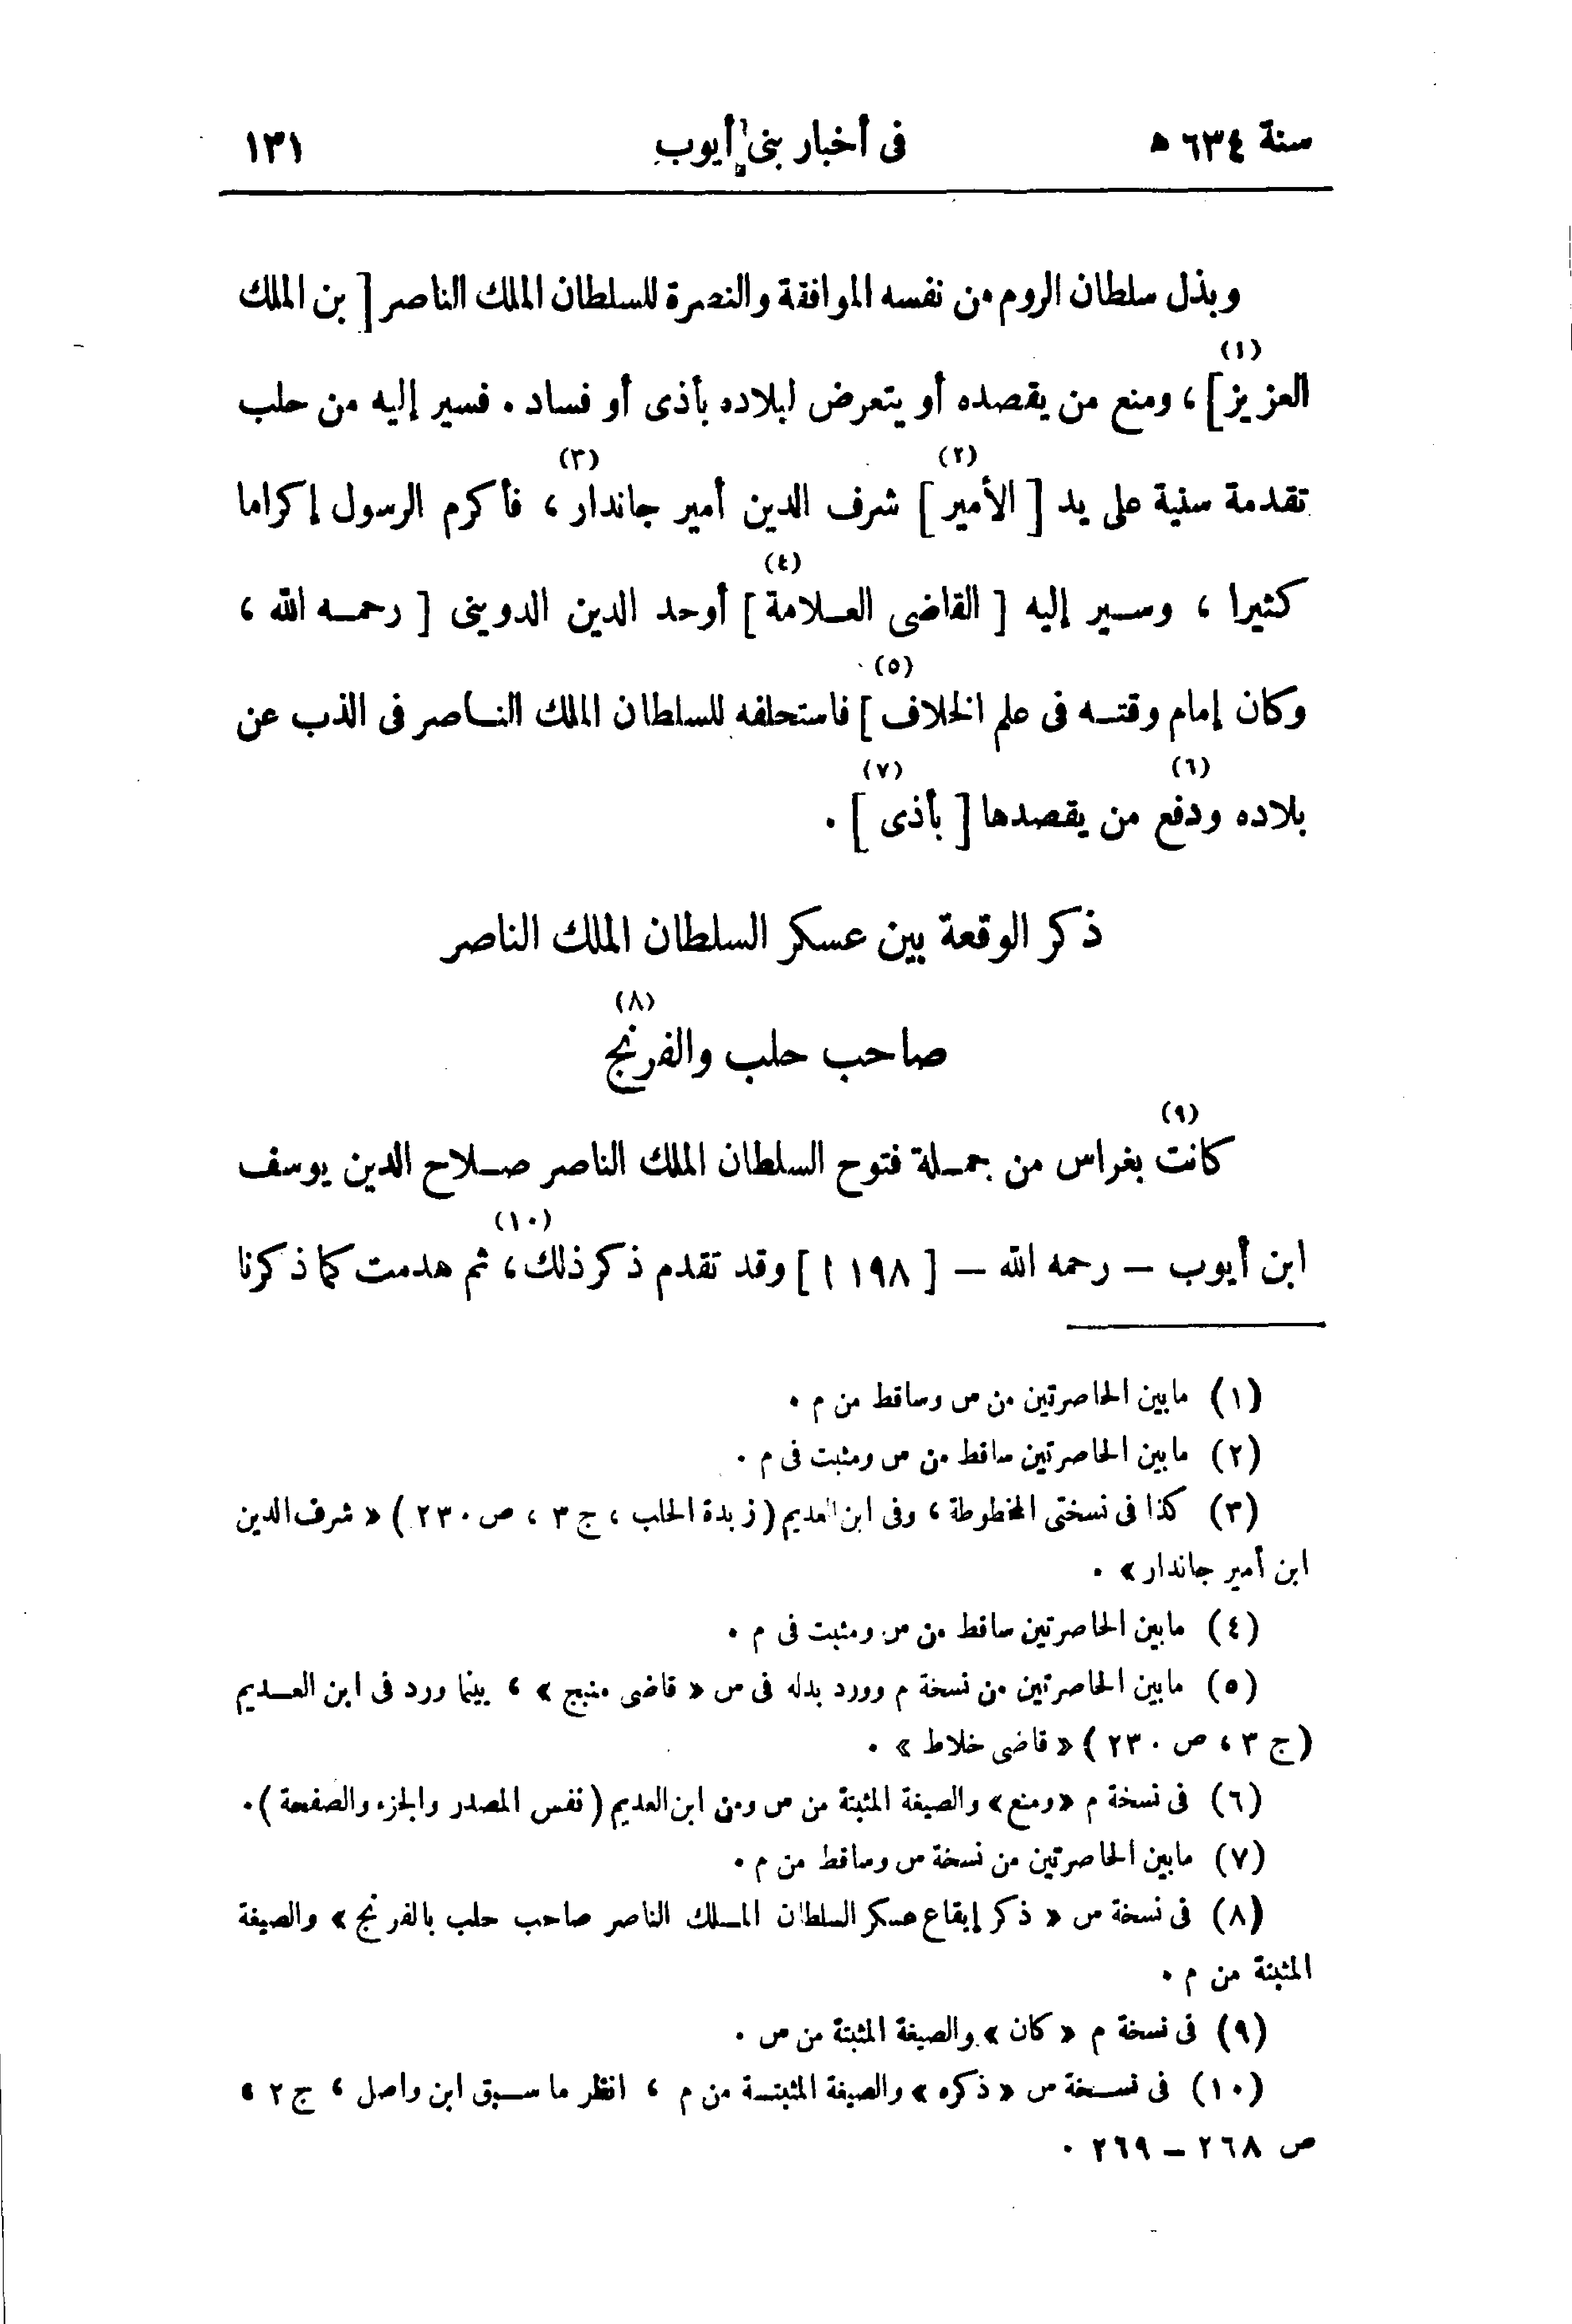 سنة ٦٣٤ ه فى أخبار بنى أيوب ١٣١
وبذل سلطان الروم من نفسه الموافقة والنصرة للسلطان الملك الناصر [ بن الملك
العزيز ](١) ، ومنع من يقصده أو يتعرض لبلاده بأذى أو فساد . فسير إليه من حلب
تقدمة سنية على يد [ الأمير ](٢) شرف الدين أمير جاندار(٣) ، فأكرم الرسول إكراما
كثيرا ، وسير إليه [ القاضى العلامة ](٤) أوحد الدين الدوينى [ رحمه الله ،
وكان إمام وقته فى علم الخلاف ](٥) فاستحلفه للسلطان الملك الناصر فى الذب عن
بلاده ودفع(٦) من يقصدها [ بأذى ](٧) .
ذكر الوقعة بين عسكر السلطان الملك الناصر
صاحب حلب والفرنج(٨)
كانت(٩) بغراس من جملة فتوح السلطان الملك الناصر صلاح الدين يوسف
ابن أيوب – رحمه الله – [ ١٩٨ ا ] وقد تقدم ذكر ذلك(١٠) ، ثم هدمت كما ذكرنا
(١) مابين الحاصرتين من س وساقط من م .
(٢) مابين الحاصرتين ساقط من س ومثبت فى م .
(٣) كذا فى نسختى المخطوطة ، وفى ابن العديم ( زبدة الحلب ، ج ٣ ، ص ٢٣٠ ) « شرف الدين
ابن أمير جاندار » .
(٤) مابين الحاصرتين ساقط من س ومثبت فى م .
(٥) مابين الحاصرتين من نسخة م وورد بدله فى س « قاضى منبج » ، بينما ورد فى ابن العديم
( ج ٣ ، ص ٢٣٠ ) « قاضى خلاط » .
(٦) فى نسخة م «ومنع» والصيغة المثبتة من س ومن ابن العديم ( نفس المصدر والجزء والصفحة ) .
(٧) مابين الحاصرتين من نسخة س وساقط من م .
(٨) فى نسخة س « ذكر إيقاع عسكر السلطان الملك الناصر صاحب حلب بالفرنج » والصيغة
المثبتة من م .
(٩) فى نسخة م « كان » والصيغة المثبتة من س .
(١٠) فى نسخة س « ذكره » والصيغة المثبتة من م ، انظر ما سبق ابن واصل ، ج ٢ ،
ص ٢٦٨ – ٢٦٩ .